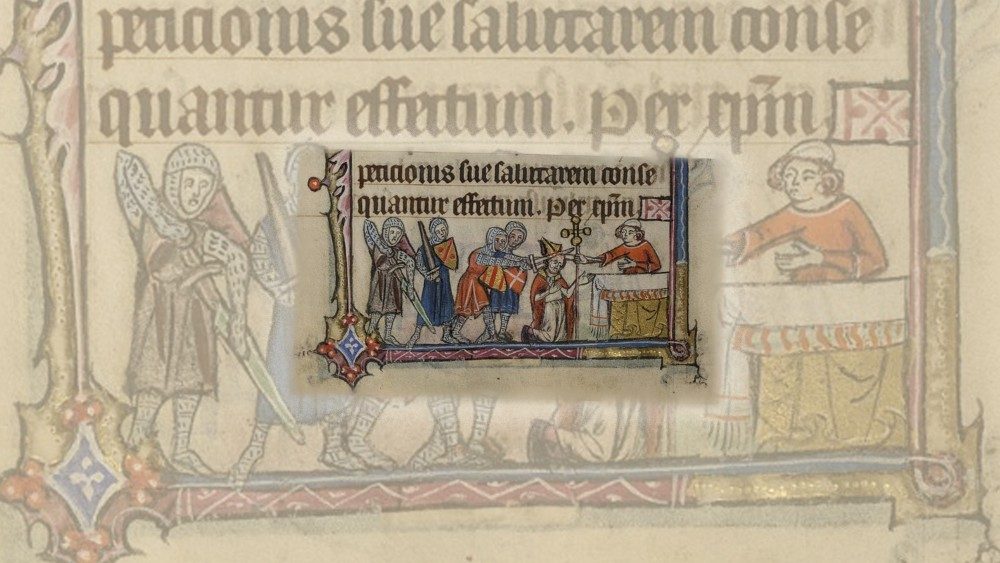 peticionis sue salutarem conse
quantur effectum. Per xp̄m
peticionis sue salutarem conse
quantur effectum. Per xp̄m